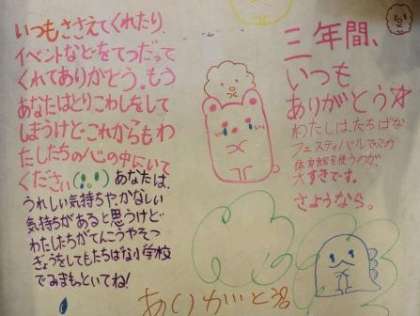 いつもささえてくれたり
イベントなどをてつだって
くれてありがとう。もう
あなたはとりこわしをして
しまうけどこれからもわ
たしたちの心の中にいて
ください
あなたは、
うれしい気持ちや、かなしい
気持ちがあると思うけど
わたしたちがてんこうやそつ
ぎょうをしてもたちばな小学校
でみまもっといてね!
三年間、
いつも
ありがとう
わたしは、たちばな
フェスティバルで
体育館を使うのが
大すきです。
さようなら。
ありがとう